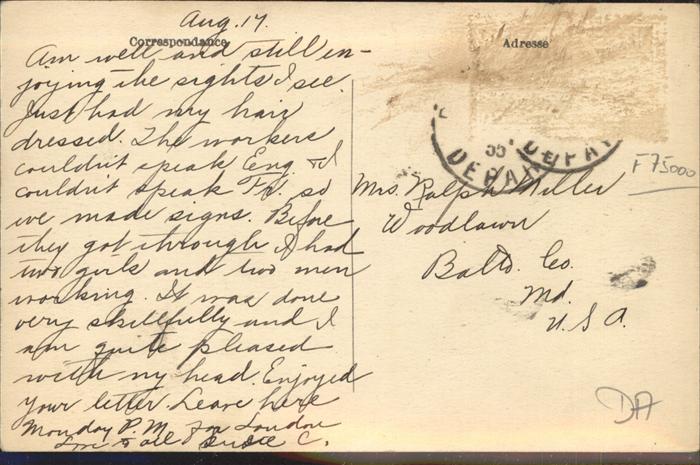 Aug. 17.
Correspondance
Am well and still en-
joying the sights I see.
Just had my hair
dressed. The workers
couldn't speak Eng & I
couldn't speak Fr. so
we made signs. Before
they got through I had
two girls and two men
working. It was done
very skillfully and I
am quite pleased
with my head. Enjoyed
your letter. Leave here
Monday P.M. for London
Love to all Susie C.
Adresse
DEPART
DEPAR
Mrs. Ralph Miller
Woodlawn
Balto. Co.
Md.
U.S.A.
F75000
DA